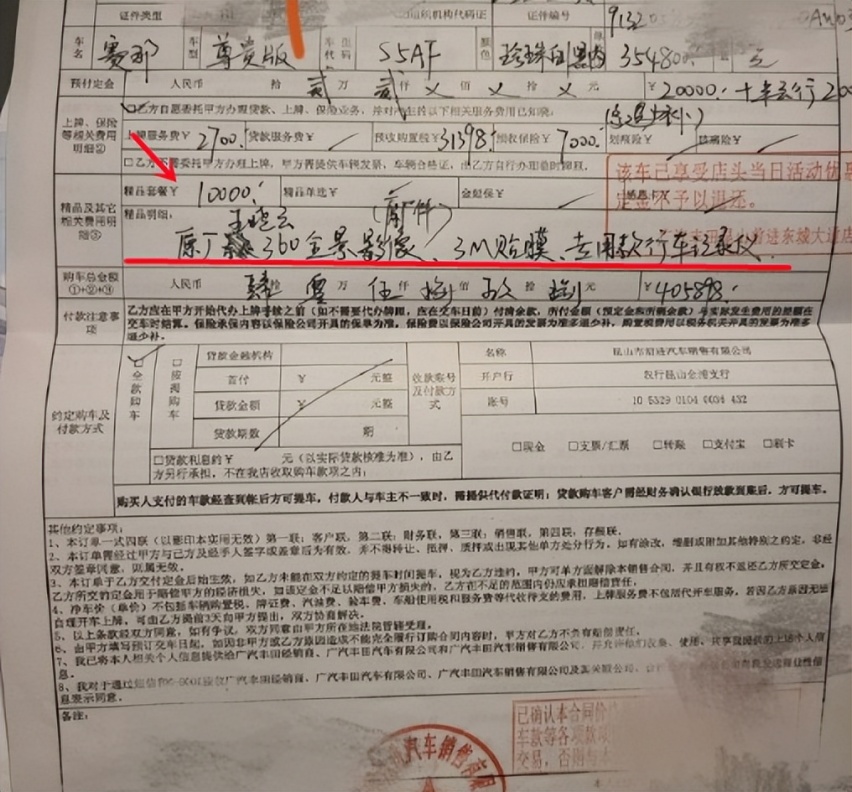 证件类型 组织机构代码证 证件编号 9132
车名 赛那 车型 尊贵版 车代码 S5AF 颜色 珍珠白 黑内 354800.
预付定金 人民币 拾 贰 万 仟 佰 拾 元 ¥20000.
□乙方自愿委托甲方办理贷款、上牌、保险业务,并对产生的以下相关服务费用已知晓:
上牌、保险等相关费用明细② 上牌服务费¥2700. 贷款服务费¥ 预收购置税¥31398. 预收保险¥7000. 划痕险¥
(多退少补)
精品套餐¥ 10000. 精品单选¥ 金融保¥
该车已享受店头当日活动优
定金不予以退还。
精品及其它相关费用明细③ 精品明细:
原厂 360全景影像、3M贴膜、专用款行车记录仪
购车总金额①+②+③ 人民币 肆 拾 零 万 伍 仟 捌 佰 玖 拾 捌 元 ¥405898.
付款注意事项 乙方应在甲方开始代办上牌手续之前(如不需要代办牌照,应在交车日前)付清余款,所付金额(预定金和所剩余款)与实际发生费用的差额在
交车时结算。保险承保内容以保险公司开具的保单为准。保险费以保险公司开具的发票为准多退少补,购置税费用以税务机关开具的发票为准多
退少补。
约定购车及付款方式 □全款购车 □按揭购车
贷款金融机构
首付 ¥ 元整
贷款金额 ¥ 元整
贷款期数 期
收款账号及付款方式
名称 昆山市前进汽车销售有限公司
开户行 农行昆山金湾支行
账号 10 5329 0104 0034 432
□现金 □支票/汇票 □转账 □支付宝 □刷卡
□贷款利息约¥ 元(以实际贷款核准为准),由乙
方另行承担,不在我店收取购车款项之内;
购买人支付的车款经查到帐后方可提车,付款人与车主不一致时,需提供代付款证明;贷款购车客户需经财务确认银行放款到账后,方可提车。
其他约定事项:
1、本订单一式四联(以影印本实用无效)第一联:客户联,第二联:财务联,第三联:销售联,第四联:存根联。
2、本订单需经过甲方与乙方及经手人签字或盖章后为有效,并不得转让、抵押、质押或出现其他单方处分行为。如有涂改、增删或附加其他特别之约定,非经
双方签章同意,则属无效。
3、本订单于乙方交付定金后始生效,如乙方未能在双方约定的提车时间提车,视为乙方违约,甲方可单方面解除本销售合同,并且有权不返还乙方所交定金,
乙方所交的定金用于赔偿甲方的经济损失,如该定金不足以赔偿甲方损失的,乙方在不足的范围内仍应承担赔偿责任。
4、净车价(单价)不包括车辆购置税、牌证费、汽油费、验车费、车船使用税和服务费等代收待支的费用,上牌服务费不包括代开车服务,若因乙方原因无法
自理开车上牌,可由乙方提前3天向甲方提出,双方协商解决。
5、以上条款经双方同意,如有争议,双方同意由甲方所在地法院管辖受理。
6、由甲方填写预订交车日起,如因非甲方或乙方原因造成不能完全履行订购合同内容时,甲方对乙方不负有赔偿责任。
7、我已将本人相关个人信息提供给广汽丰田经销商、广汽丰田汽车有限公司、广汽丰田汽车销售有限公司
息。
8、我对于通过短信 广汽丰田经销商、广汽丰田汽车有限公司、广汽丰田汽车销售有限公司及
息表示同意。
备注:
已确认本合同价
车款等各项款
交易,否则与本
汽车销售有限